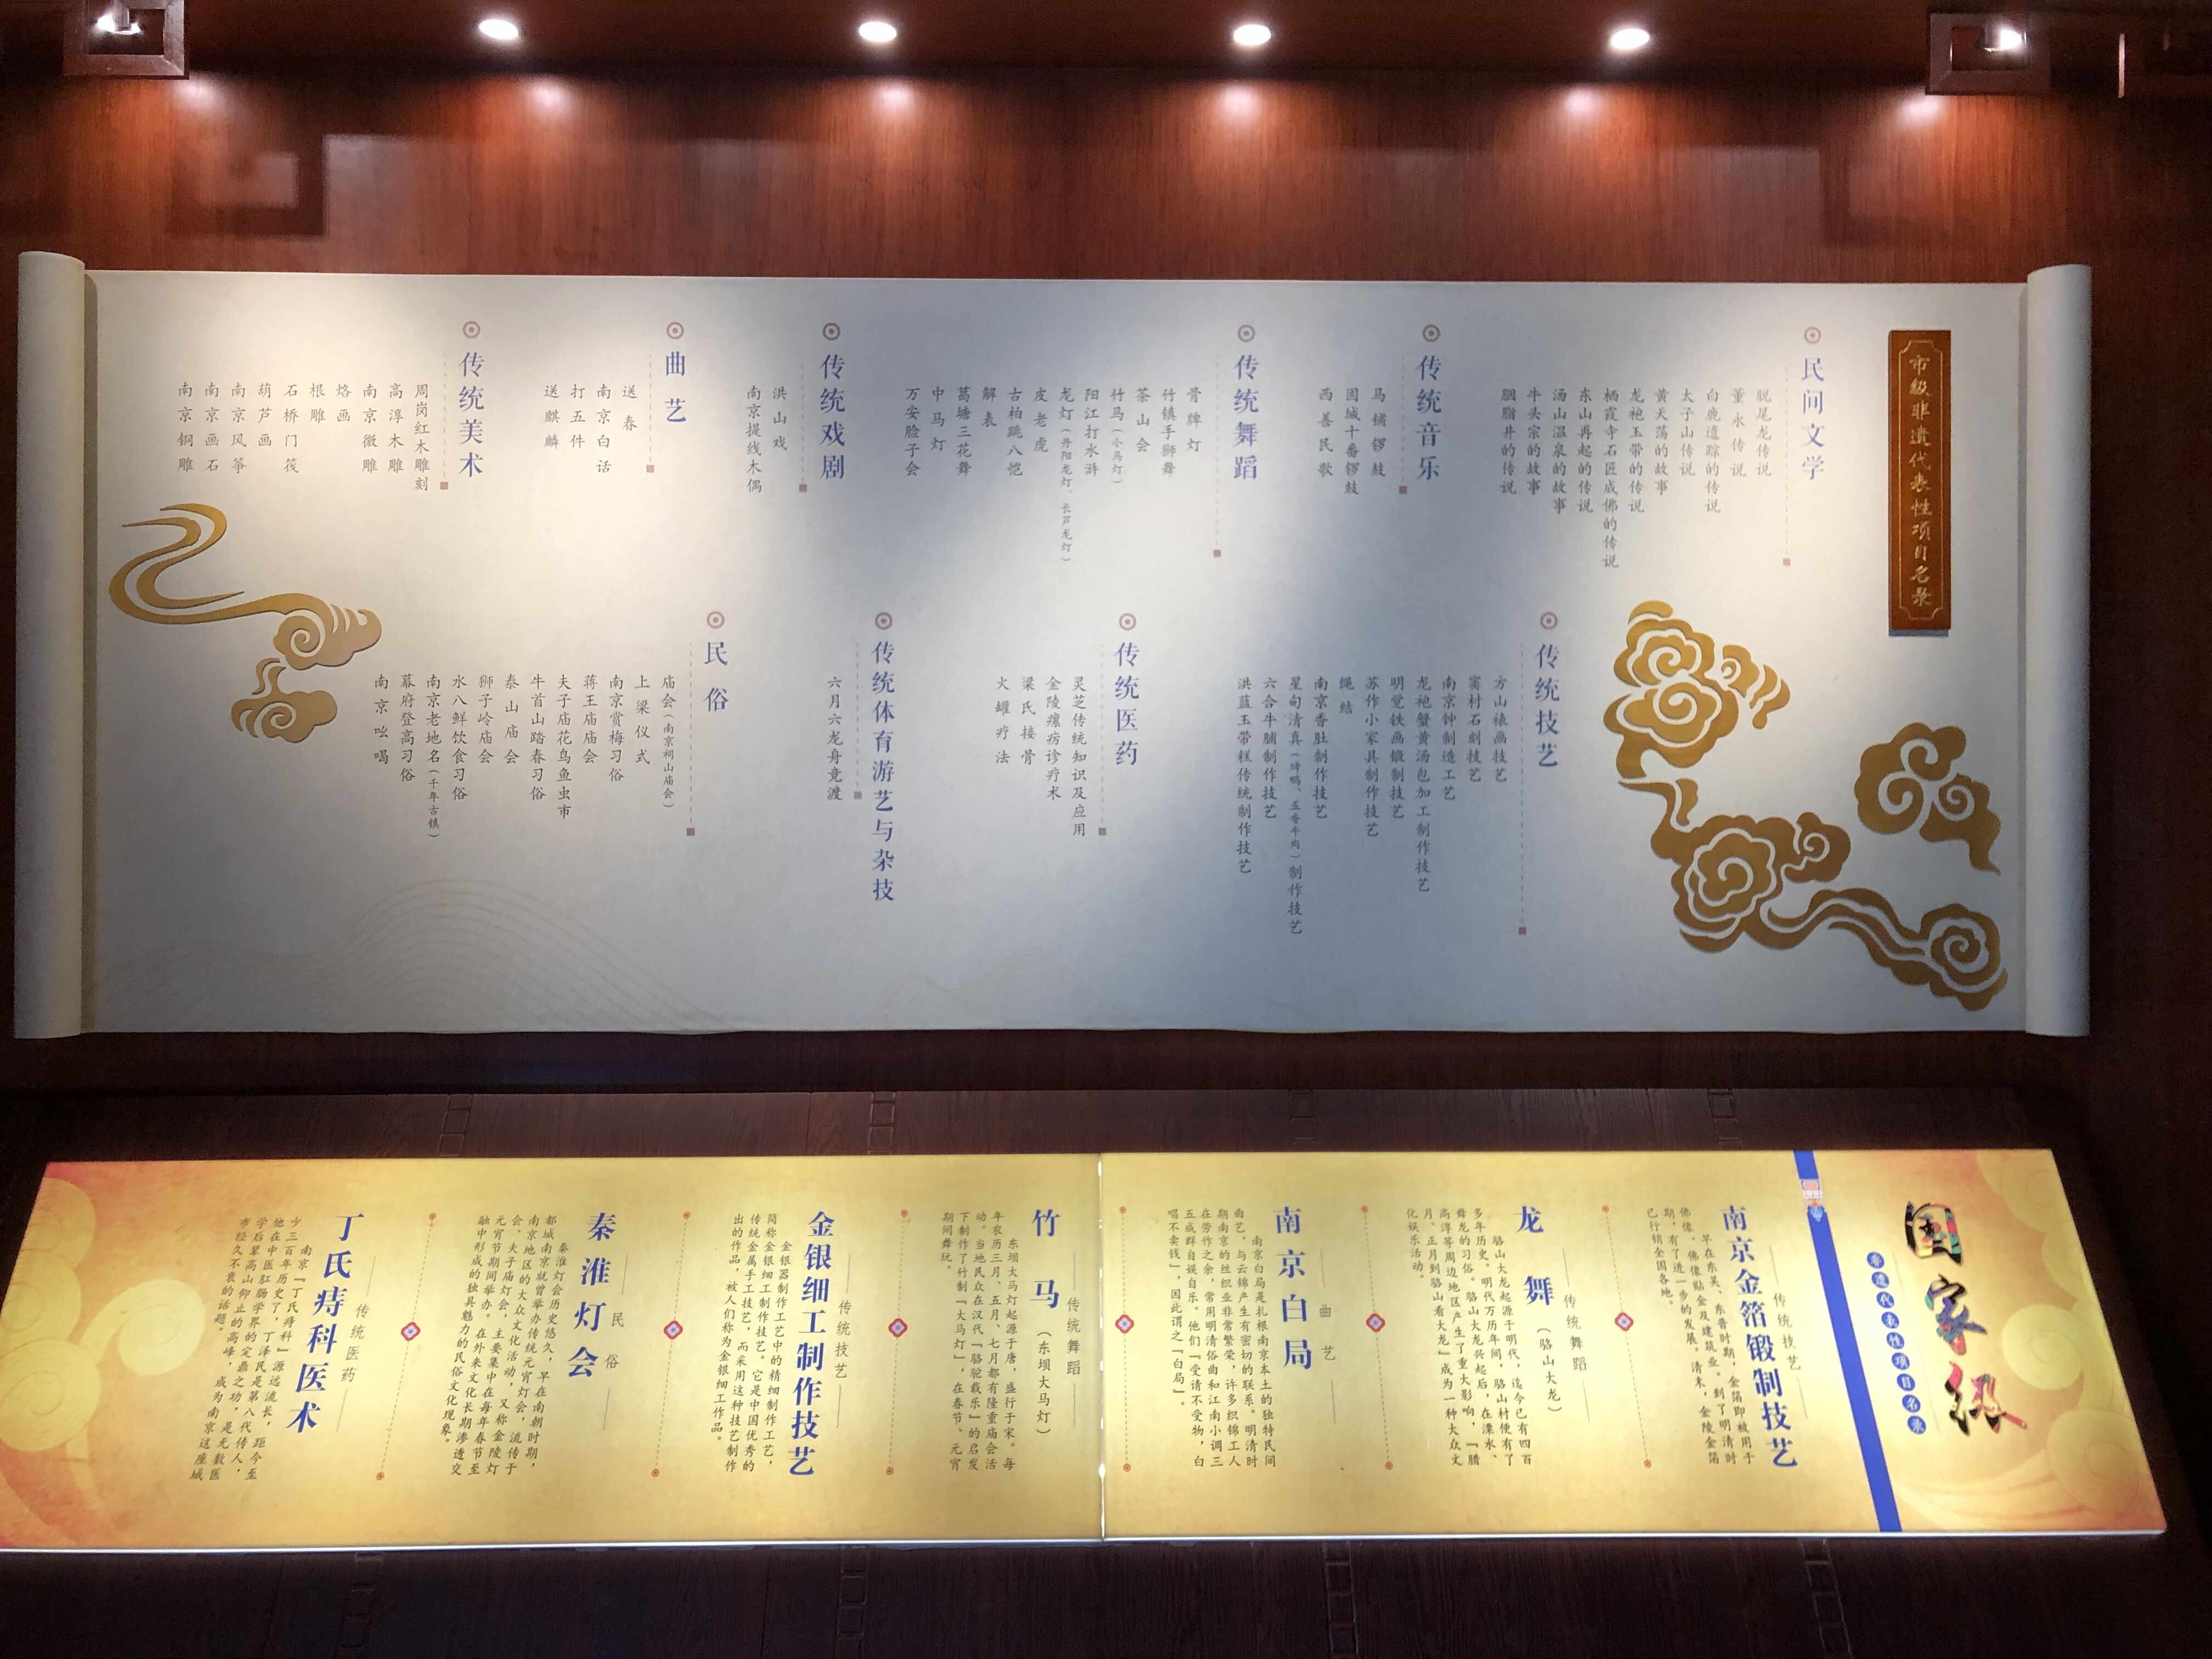 市级非遗代表性项目名录
民间文学
脱尾龙传说
董永传说
白鹿遗踪的传说
太子山传说
黄天荡的故事
龙袍玉带的传说
栖霞寺石匠成佛的传说
东山再起的传说
汤山温泉的故事
牛头宗的故事
胭脂井的传说
传统音乐
马铺锣鼓
固城十番锣鼓
西善民歌
传统舞蹈
骨牌灯
竹镇手狮舞
茶山会
竹马（小马灯）
阳江打水浒
龙灯（丹阳龙灯、长芦龙灯）
皮老虎
古柏跳八恺
解表
葛塘三花舞
中马灯
万安脸子会
传统戏剧
洪山戏
南京提线木偶
曲艺
送春
南京白话
打五件
送麒麟
传统美术
周岗红木雕刻
高淳木雕
南京微雕
烙画
根雕
石桥门笺
葫芦画
南京风筝
南京画石
南京铜雕
传统技艺
方山裱画技艺
窦村石刻技艺
南京钟制造工艺
龙袍蟹黄汤包加工制作技艺
明觉铁画锻制技艺
苏作小家具制作技艺
绳结
南京香肚制作技艺
星甸清真（烤鸭、五香牛肉）制作技艺
六合牛脯制作技艺
洪蓝玉带糕传统制作技艺
传统医药
灵芝传统知识及应用
金陵瘰疬诊疗术
梁氏接骨
火罐疗法
传统体育游艺与杂技
六月六龙舟竞渡
民俗
庙会（南京祠山庙会）
上梁仪式
南京赏梅习俗
蒋王庙庙会
夫子庙花鸟鱼虫市
牛首山踏春习俗
泰山庙会
狮子岭庙会
水八鲜饮食习俗
南京老地名（千年古镇）
幕府登高习俗
南京吆喝
国家级
非遗代表性项目名录
传统技艺
南京金箔锻制技艺
早在东吴、东晋时期，金箔即被用于
佛像、佛像贴金及建筑业。到了明清时
期，有了进一步的发展。清末，金陵金箔
已行销全国各地。
传统舞蹈
龙舞（骆山大龙）
骆山大龙起源于明代，迄今已有四百
多年历史。明代万历年间，骆山村便有了
舞龙的习俗。骆山大龙兴起后，在溧水、
高淳等周边地区产生了重大影响，「腊
月、正月到骆山看大龙」成为一种大众文
化娱乐活动。
曲艺
南京白局
南京白局是扎根南京本土的独特民间
曲艺，与云锦产生有密切的联系。明清时
期南京的丝织业非常繁荣，许多织锦工人
在劳作之余，常用明清俗曲和江南小调三
五成群自娱自乐。他们「受请不受物，白
唱不卖钱」，因此谓之「白局」。
传统舞蹈
竹马（东坝大马灯）
东坝大马灯起源于唐，盛行于宋。每
年农历三月、五月、七月都有隆重庙会活
动。当地民众在汉代「骆驼载乐」的启发
下制作了竹制「大马灯」，在春节、元宵
期间舞玩。
传统技艺
金银细工制作技艺
金银器制作工艺中的精细制作工艺，
简称金银细工制作技艺。它是中国优秀的
传统金属手工技艺，而采用这种技艺制作
出的作品，被人们称为金银细工作品。
民俗
秦淮灯会
秦淮灯会历史悠久，早在南朝时期，
都城南京就曾举办传统元宵灯会，流传于
南京地区的大众文化活动，又称金陵灯
会、夫子庙灯会，主要集中在每年春节至
元宵节期间举办。在外来文化长期渗透交
融中形成的独具魅力的民俗文化现象。
传统医药
丁氏痔科医术
南京「丁氏痔科」源远流长，距今至
少三百年历史了，丁泽民是第八代传人，
他在中医肛肠学界的定鼎之功，是无数医
学后辈高山仰止的高峰，成为南京这座城
市经久不衰的话题。